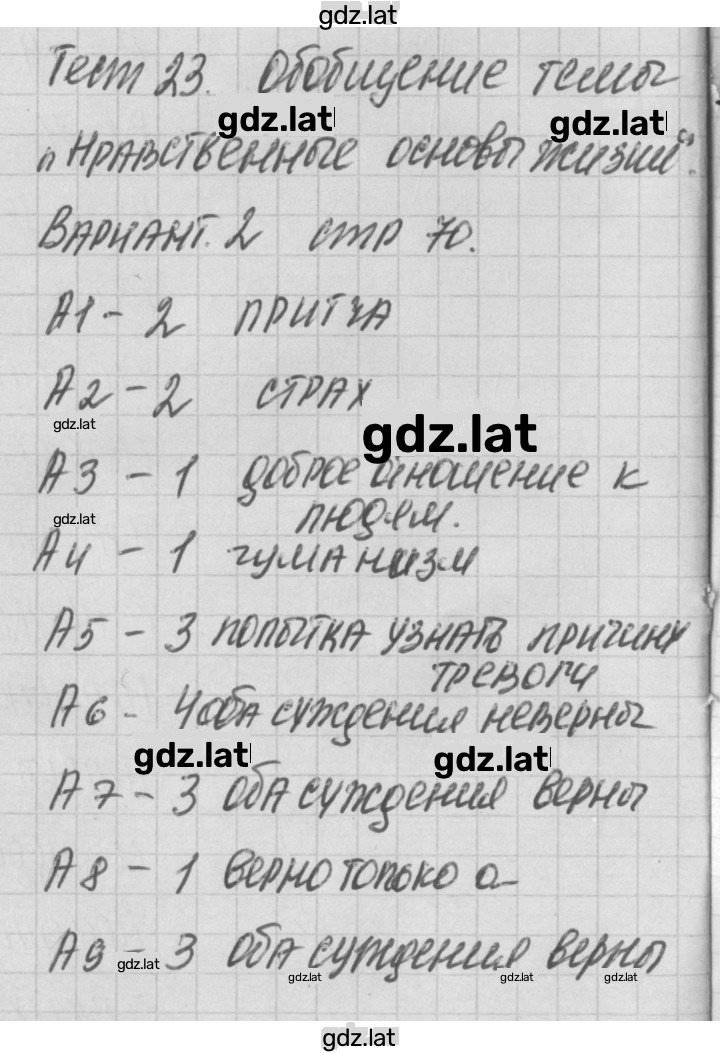 gdz.lat
Тест 23. Обобщение темы
gdz.lat gdz.lat
„Нравственные основы жизни".
Вариант. 2 стр 70.
А1 - 2 притча
А2 - 2 страх
gdz.lat gdz.lat
А3 - 1 доброе отношение к
людям.
gdz.lat
А4 - 1 гуманизм
А5 - 3 попытка узнать причину
тревоги
А6 - 4 оба суждения неверны
gdz.lat gdz.lat
А7 - 3 оба суждения верны
А8 - 1 верно только а
А9 - 3 оба суждения верны
gdz.lat gdz.lat gdz.lat gdz.lat
gdz.lat